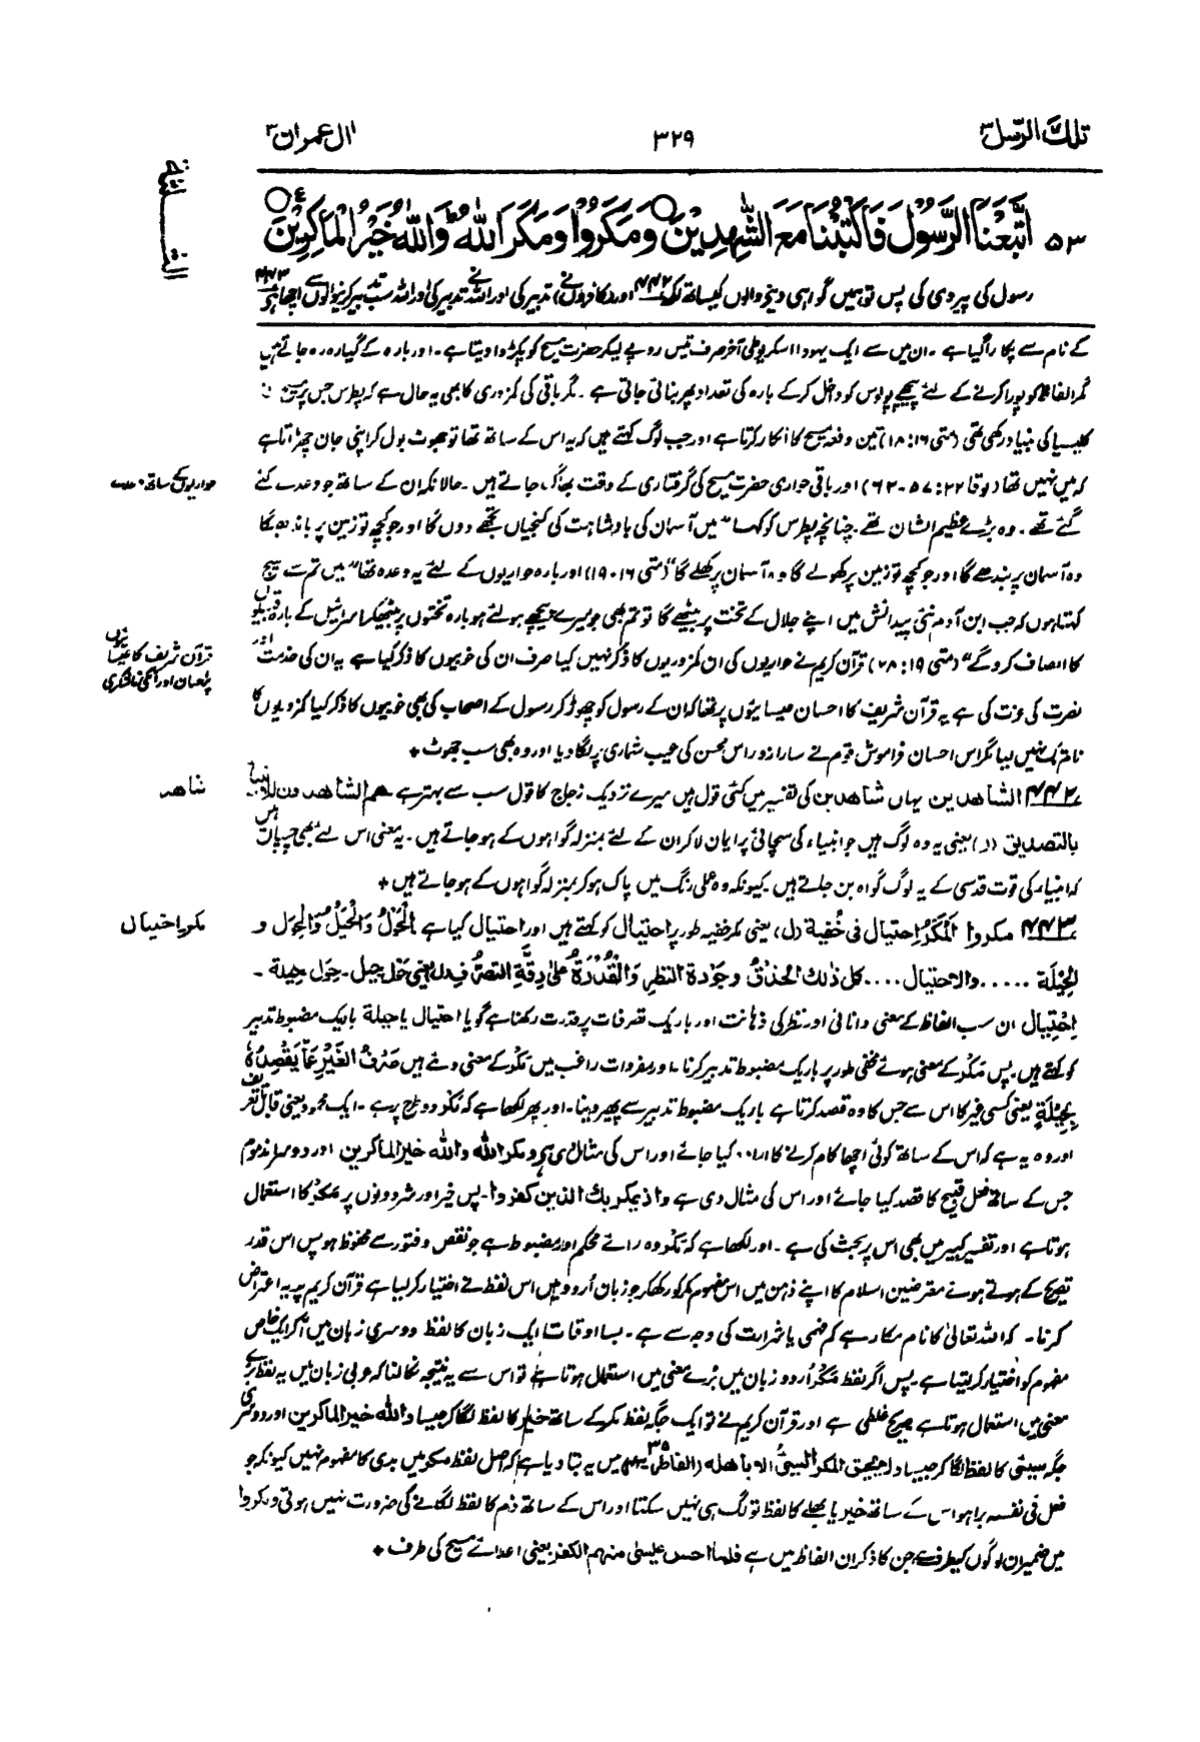 تلك الرّسل ۳
۳۲۹
اٰل عمران ۳
۵۳ اتَّبَعْنَا الرَّسُوْلَ فَاكْتُبْنَا مَعَ الشّٰهِدِيْنَ ○ وَمَكَرُوْا وَمَكَرَ اللّٰهُ ؕ وَاللّٰهُ خَيْرُ الْمَاكِرِيْنَ ○ ع
رسول کی پیروی کی پس تو ہمیں گواہی دینے والوں کیساتھ لکھ ۴۴۲ اور (کافروں نے) تدبیر کی اور اللہ نے تدبیر کی اور اللہ سب تدبیر کرنیوالوں سے اچھا ہے ۴۴۳
کے نام سے پکارا گیا ہے ۔ ان میں سے ایک یہودا اسکریوطی آخر صرف تیس روپے لیکر حضرت مسیح کو پکڑوا دیتا ہے ۔ اور بارہ کے گیارہ رہ جاتے ہیں
مگر الفاظ کو پورا کرنے کے لئے پیچھے پولوس کو داخل کر کے بارہ کی تعداد پھر بنائی جاتی ہے ۔ مگر باقی کی کمزوری کا بھی یہ حال ہے کہ پطرس جس پر مسیح نے
کلیسیا کی بنیاد رکھی تھی (متی ۱۶: ۱۸) تین دفعہ مسیح کا انکار کرتا ہے اور جب لوگ کہتے ہیں کہ یہ اس کے ساتھ تھا تو جھوٹ بول کر اپنی جان چھڑاتا ہے
کہ میں نہیں تھا (لوقا ۲۲: ۵۷-۶۲) اور باقی حواری حضرت مسیح کی گرفتاری کے وقت بھاگ جاتے ہیں ۔ حالانکہ ان کے ساتھ جو وعدے کئے
حواریوں کے ساتھ وعدے
گئے تھے ۔ وہ بڑے عظیم الشان تھے ۔ چنانچہ پطرس کو کہا ’’میں آسمان کی بادشاہت کی کنجیاں تجھے دوں گا اور جو کچھ تو زمین پر باندھے گا
وہ آسمان پر بندھے گا اور جو کچھ تو زمین پر کھولے گا وہ آسمان پر کھلے گا‘‘ (متی ۱۶-۱۹) اور بارہ حواریوں کے لئے یہ وعدہ تھا ’’میں تم سے سچ
کہتا ہوں کہ جب ابن آدم نئی پیدائش میں اپنے جلال کے تخت پر بیٹھے گا تو تم بھی جو میرے پیچھے ہو لئے ہو بارہ تختوں پر بیٹھکر اسرائیل کے بارہ قبیلوں
کا انصاف کرو گے‘‘ (متی ۱۹: ۲۸) قرآن کریم نے حواریوں کی ان کمزوریوں کا ذکر نہیں کیا صرف ان کی خوبیوں کا ذکر کیا ہے یہ ان کی خدمت اور
قرآن شریف کا عیسائیوں
پر احسان اور انکی ناشکری
نصرت کی عزت کی ہے یہ قرآن شریف کا احسان عیسائیوں پر تھا کہ ان کے رسول کو چھوڑ کر رسول کے اصحاب کی بھی خوبیوں کا ذکر کیا کمزوریوں کا
نام تک نہیں لیا مگر اس احسان فراموش قوم نے سارا زور اس محسن کی عیب شماری پر لگا دیا اور وہ بھی سب جھوٹ ٭
۴۴۲ الشاهدین یہاں شاهدین کی تفسیر میں کئی قول ہیں میرے نزدیک زجاج کا قول سب سے بہتر ہے هم الشاهدون للانبیا
شاهد
بالتصدیق (ر) یعنی یہ وہ لوگ ہیں جو انبیاء کی سچائی پر ایمان لا کر ان کے لئے بمنزلہ گواہوں کے ہو جاتے ہیں ۔ یہ معنی اس لئے بھی چسپاں ہیں
کہ انبیاء کی قوت قدسی کے یہ لوگ گواہ بن جاتے ہیں ۔ کیونکہ وہ عملی رنگ میں پاک ہو کر بمنزلہ گواہوں کے ہو جاتے ہیں ٭
۴۴۳ مکروا اَلْمَكْرُ احتیال فی خُفیة (ل) یعنی مکر خفیہ طور پر احتیال کو کہتے ہیں اور احتیال کیا ہے اَلْحَوْلُ وَالْحَیْلُ وَالْحِوَل و
مکر احتیال
الْحِیْلَة ..... والاحتیال .... کل ذلك الحِذْقُ وجَوْدة النظرِ وَالْقُدْرَةُ علیٰ دِقَّةِ التصرُّف (ل) یعنی حَوْل حیل ۔ حِوَل حیلة ۔
اِحْتِیال ان سب الفاظ کے معنی دانائی اور نظر کی ذہانت اور باریک تصرفات پر قدرت رکھنا ہے گویا احتیال یا حیلة باریک مضبوط تدبیر
کو کہتے ہیں ۔ پس مَکْر کے معنی ہوئے مخفی طور پر باریک مضبوط تدبیر کرنا ۔ اور مفردات راغب میں مَکْر کے معنی دئے ہیں صَرْفُ الْغَیْرِ عَمَّا یَقْصِدُہٗ
بِحِیْلَةٍ یعنی کسی غیر کا اس سے جس کا وہ قصد کرتا ہے باریک مضبوط تدبیر سے پھیر دینا ۔ اور پھر لکھا ہے کہ مَکْر دو طرح پر ہے ۔ ایک محمود یعنی قابل تعریف
اور وہ یہ ہے کہ اس کے ساتھ کوئی اچھا کام کرنے کا ارادہ کیا جائے اور اس کی مثال دی ہے ومکر اللّٰہ واللّٰہ خیر الماکرین اور دوسرا مذموم
جس کے ساتھ فعل قبیح کا قصد کیا جائے اور اس کی مثال دی ہے واذ یمکر بك الذین کفروا ۔ پس خیر اور شر دونوں پر مَکر کا استعمال
ہوتا ہے اور تفسیر کبیر میں بھی اس پر بحث کی ہے ۔ اور لکھا ہے کہ مَکْر وہ رائے محکم اور مضبوط ہے جو نقص و فتور سے محفوظ ہو پس اس قدر
تصریح کے ہوتے ہوئے معترضین اسلام کا اپنے ذہن میں اس مفہوم کو رکھ کر جو زبان اُردو میں اس لفظ نے اختیار کر لیا ہے قرآن کریم پر یہ اعتراض
کرنا ۔ کہ اللہ تعالیٰ کا نام مکار ہے کم فہمی یا شرارت کی وجہ سے ہے ۔ بسا اوقات ایک زبان کا لفظ دوسری زبان میں آکر ایک خاص
مفہوم کو اختیار کر لیتا ہے ۔ پس اگر لفظ مَکْر اُردو زبان میں بُرے معنی میں استعمال ہوتا ہے تو اس سے یہ نتیجہ نکالنا کہ عربی زبان میں یہ لفظ بُرے
معنی میں استعمال ہوتا ہے صریح غلطی ہے اور قرآن کریم نے تو ایک جگہ لفظ مکر کے ساتھ خیر کا لفظ لگا کر جیسا واللّٰہ خیر الماکرین اور دوسری
جگہ سیئی کا لفظ لگا کر جیسا ولا یحیق المکر السیئ الا باهله (الفاطر ۳۵) میں یہ بتا دیا ہے کہ اصل لفظ مکر میں بدی کا مفہوم نہیں کیونکہ جو
فعل فی نفسہ برا ہو اس کے ساتھ خیر یا بھلے کا لفظ تو لگ ہی نہیں سکتا اور اس کے ساتھ ذم کا لفظ لگانے کی ضرورت نہیں ہوتی ومکروا
میں ضمیر ان لوگوں کیطرف ہے جن کا ذکر ان الفاظ میں ہے فلما احس عیسیٰ منهم الکفر یعنی اعدائے مسیح کی طرف ٭